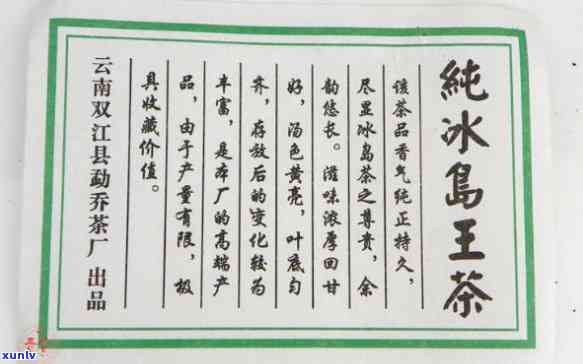 純冰島王茶
该茶品香气纯正持久，
尽显冰岛茶之尊贵，余
韵悠长。滋味浓厚回甘
好，汤色黄亮，叶底匀
齐，存放后的变化较为
丰富，是本厂的高端产
品，由于产量有限，极
具收藏价值。
云南双江县勐乔茶厂 出品
xunlv